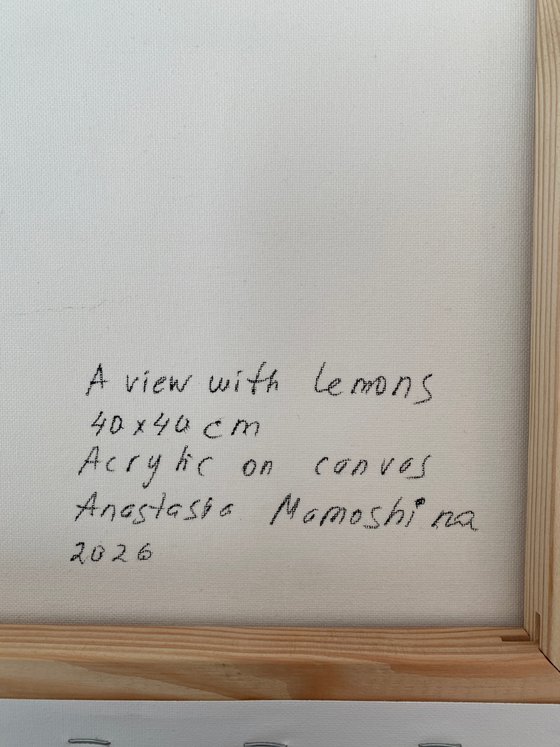 A view with lemons
40x40 cm
Acrylic on canvas
Anastasia Mamoshina
2026